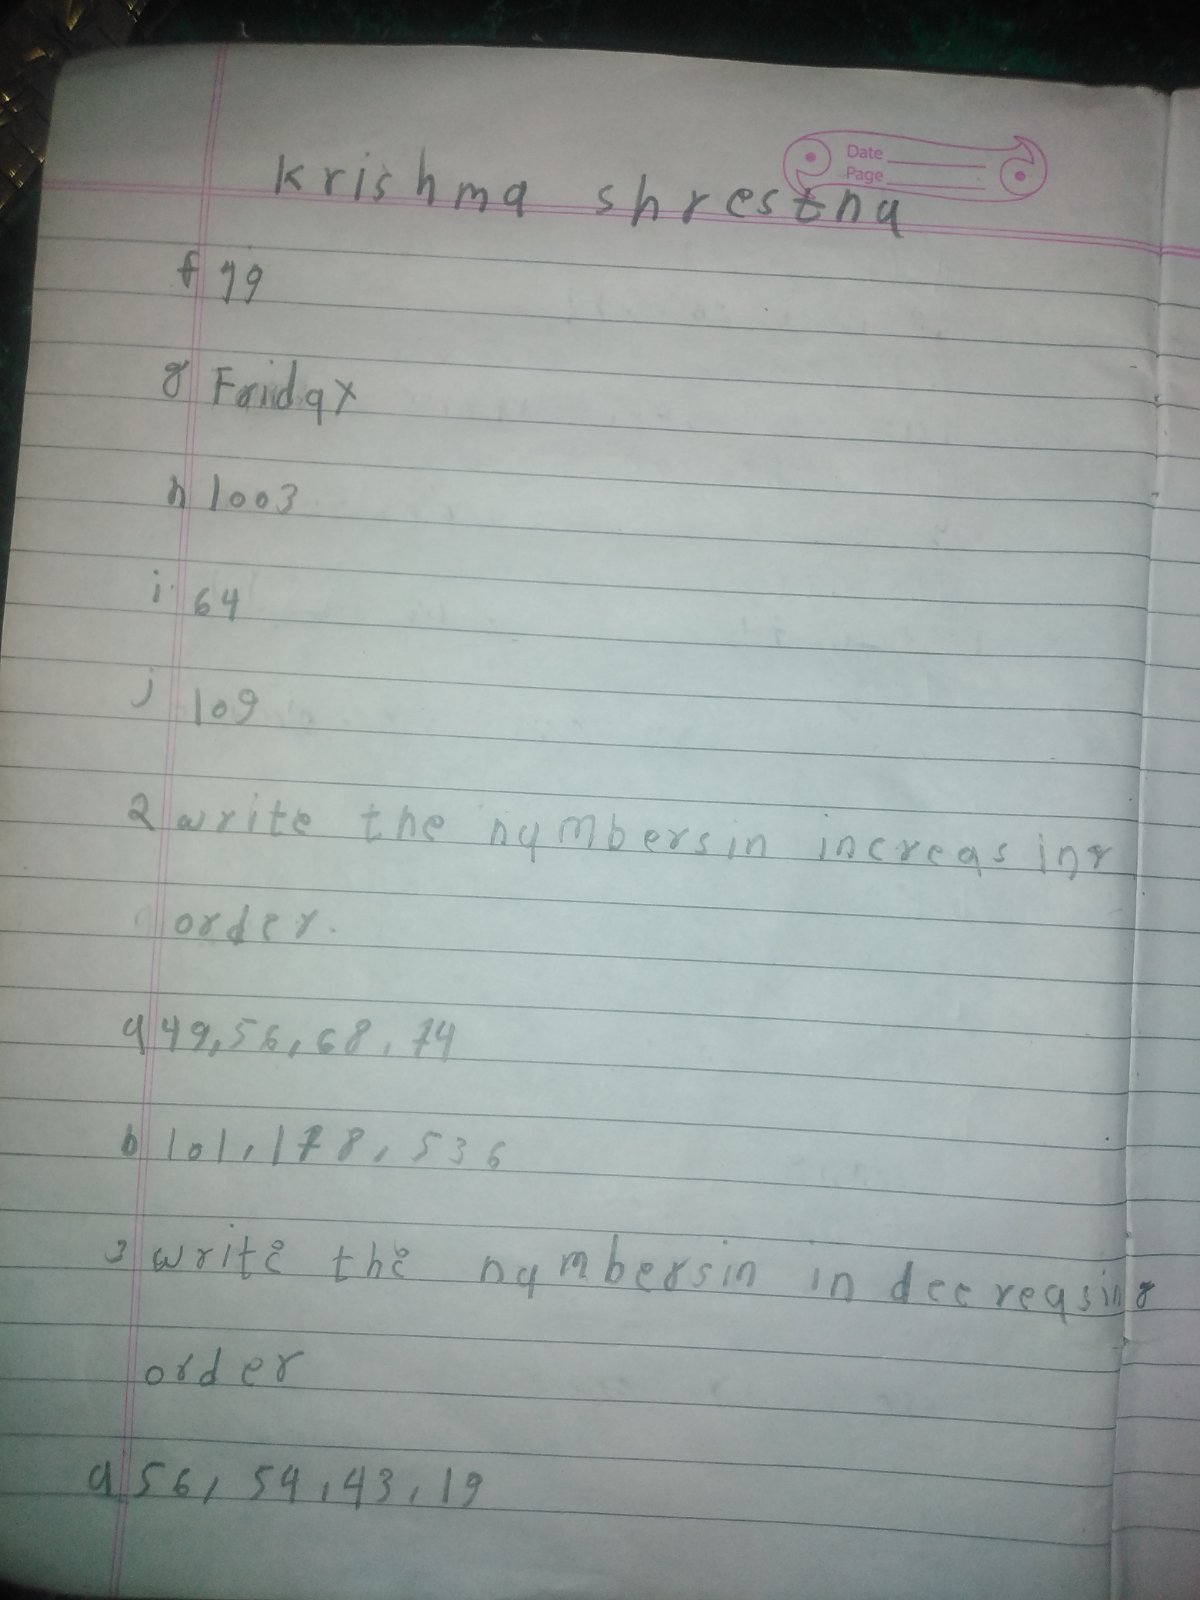 Date
Page
Krishma shrestha
f 79
g Friday
h 1003
i 64
j 109
2 write the numbersin increasing
order.
a 49, 56, 68, 74
b 101, 178, 536
3 write the numbersin in decreasing
order
a 56, 54, 43, 19